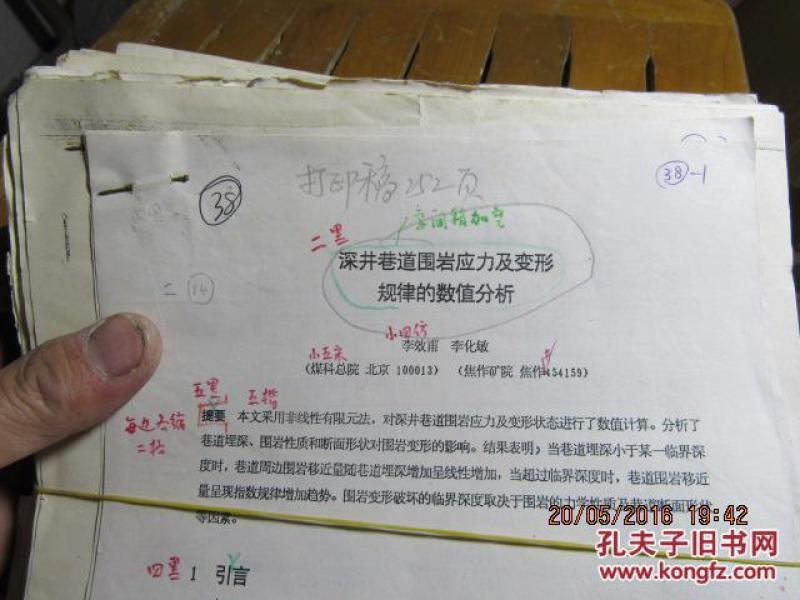 38
打印稿252页
38-1
字间稍加空
二黑
深井巷道围岩应力及变形
规律的数值分析
二 14
小四仿
李效甫 李化敏
小五宋
(煤科总院 北京 100013) (焦作矿院 焦作 454159)
五黑 五楷
每边各缩
二格
提要 本文采用非线性有限元法，对深井巷道围岩应力及变形状态进行了数值计算。分析了
巷道埋深、围岩性质和断面形状对围岩变形的影响。结果表明；当巷道埋深小于某一临界深
度时，巷道周边围岩移近量随巷道埋深增加呈线性增加，当超过临界深度时，巷道围岩移近
量呈现指数规律增加趋势。围岩变形破坏的临界深度取决于围岩的力学性质及巷道断面形状
等因素。
20/05/2016 19:42
四黑 1 引言
孔夫子旧书网
www.kongfz.com